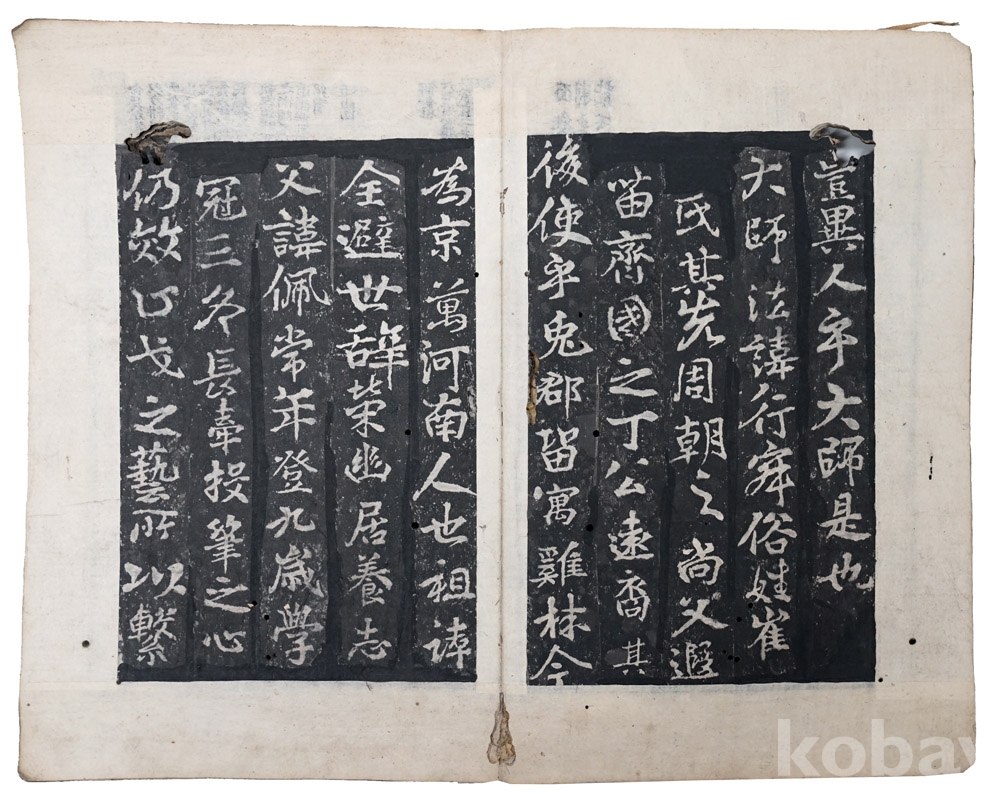 豈異人乎大師是也
大師法諱行寂俗姓崔
氏其先周朝之尚父遐
苗齊國之丁公遠裔其
後使乎兎郡留寓雞林今
為京萬河南人也祖諱
全避世辭榮幽居養志
父諱佩常年登九歲學
冠三冬長牽投筆之心
仍效止戈之藝所以繫
kobay